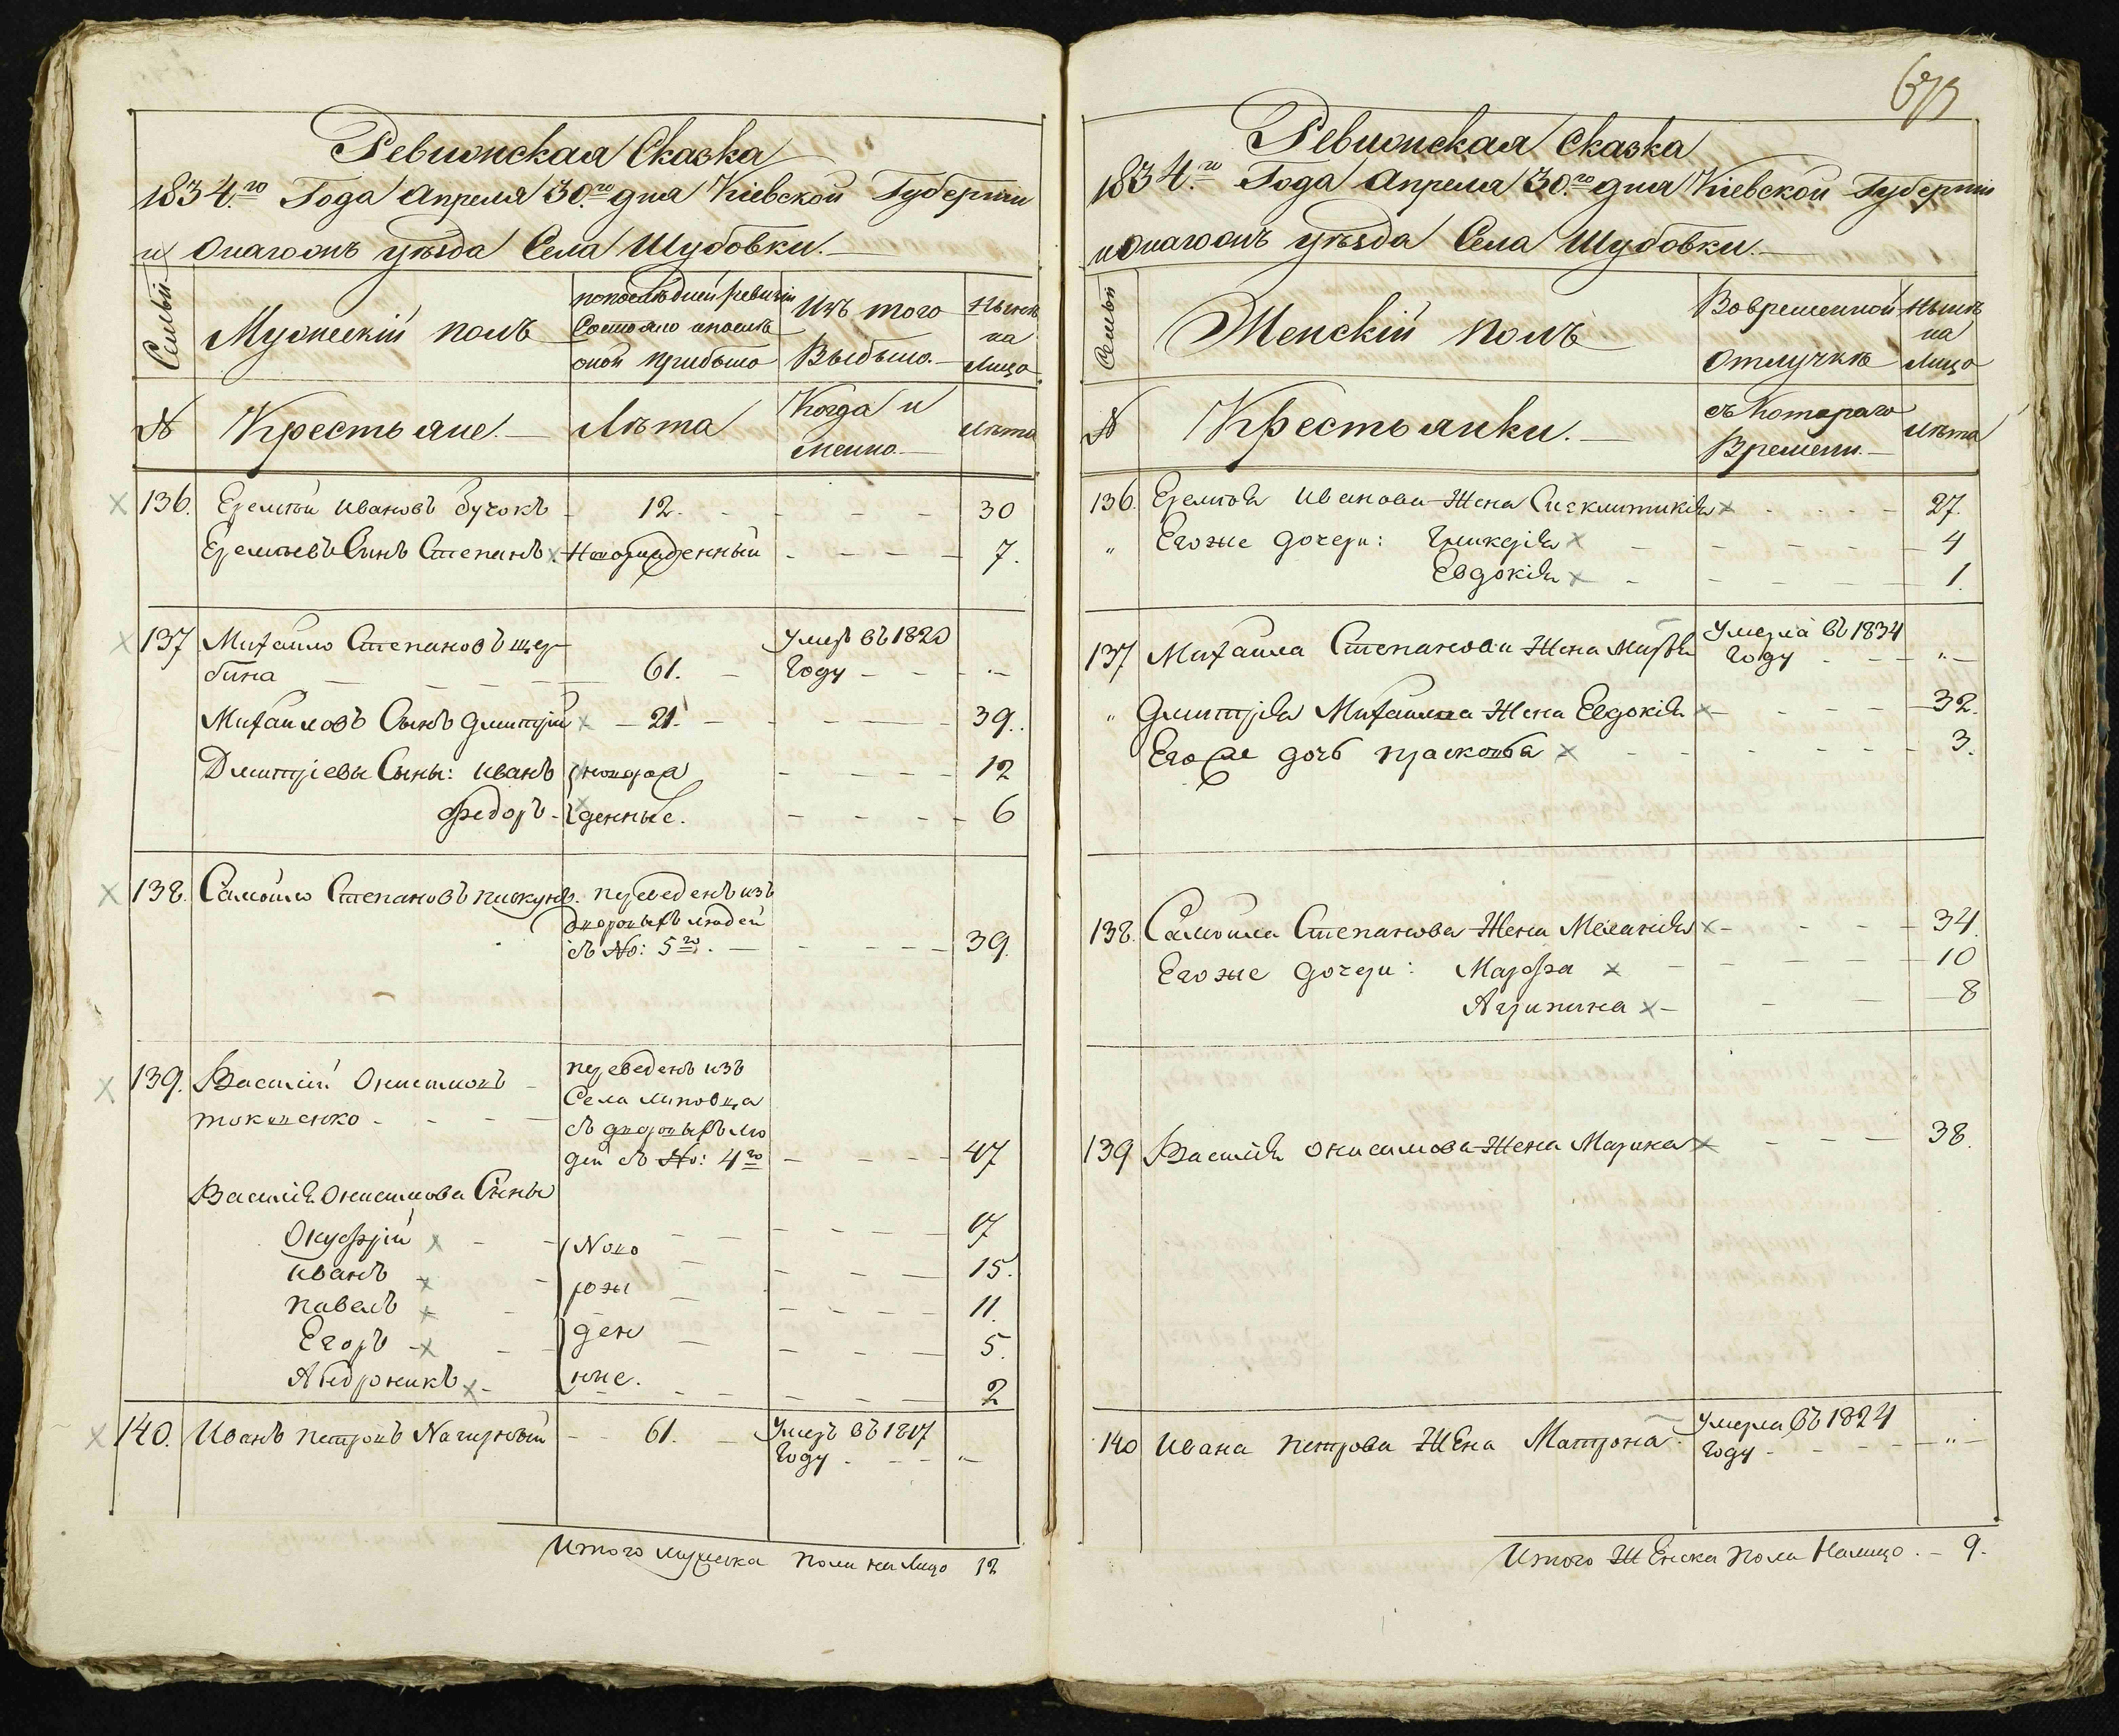 Ревизская Сказка
1834.го Года Апреля 30.го дня Кіевской Губерніи
и онагожъ уѣзда Села Шубовки.
Семьи
Мужескій полъ
по последней ревизіи
Состояло и после
оной прибыло
Изъ того
Выбыло.
Нынѣ
на
лицо
№
Крестьяне.
Лѣта
Когда и
менно.
Лѣта
136. Еремѣй Ивановъ Бучокъ - 12. - - - - 30
Еремѣевъ Синъ Степанъ х Новорожденный - - - - 7.
137 Михайло Степановъ щер-
бина - - - 61. - Умеръ въ 1820
Году - - -
Михайловъ Сынъ Дмитрій х - 21. - - - - 39.
Дмитріевы Сыны: Иванъ новорож - - - - 12
Федоръ - денные. - - - - 6
138. Самойло Степановъ пискунъ. переведенъ изъ
дворовыхъ людей
съ №: 5го. - - - - 39.
139. Василій Онисимовъ - переведенъ изъ
Села липовца
съ дворовыхъ лю
дей съ №: 4го - - - - 47
Василія Онисимова Сыны
Онуфрій х - - - - 17
Ново
Иванъ х - - - - 15.
рож
Павелъ х - - - - 11.
Егоръ х - ден - - - - 5.
Андроникъ х - ные. - - - - 2
140. Иванъ Петровъ Нагирный - - 61. - Умеръ въ 1817
Году - - -
Итого мужеска пола на лицо 12
Ревизская Сказка
1834.го Года Апреля 30.го дня Кіевской Губерніи
и онагожъ уѣзда Села Шубовки.
Семьи
Женскій полъ
Вовременной
отлучкѣ
Нынѣ
на
лицо
№
Крестьянки.
съ Котораго
Времени.
Лѣта
136. Еремѣя Иванова Жена х - - - - 27.
" Егоже дочери: х - - - - 4
Евдокія х - - - - 1.
137 Михайла Степанова Жена Умерла въ 1834
Году - - - "-
" Дмитрія Михайлова Жена Евдокія х - - - - 32.
Егоже дочь Прасковья х - - - - 3.
138. Самойла Степанова Жена Меланія х - - - - 34.
Егоже дочери: Марфа х - - - - 10
Агрипина х - - - - 8
139 Василія Онисимова Жена Марина х - - - - 38.
140 Ивана Петрова Жена Матрона. Умерла въ 1824
Году - - - "-
Итого Женска пола Налицо. - 9.